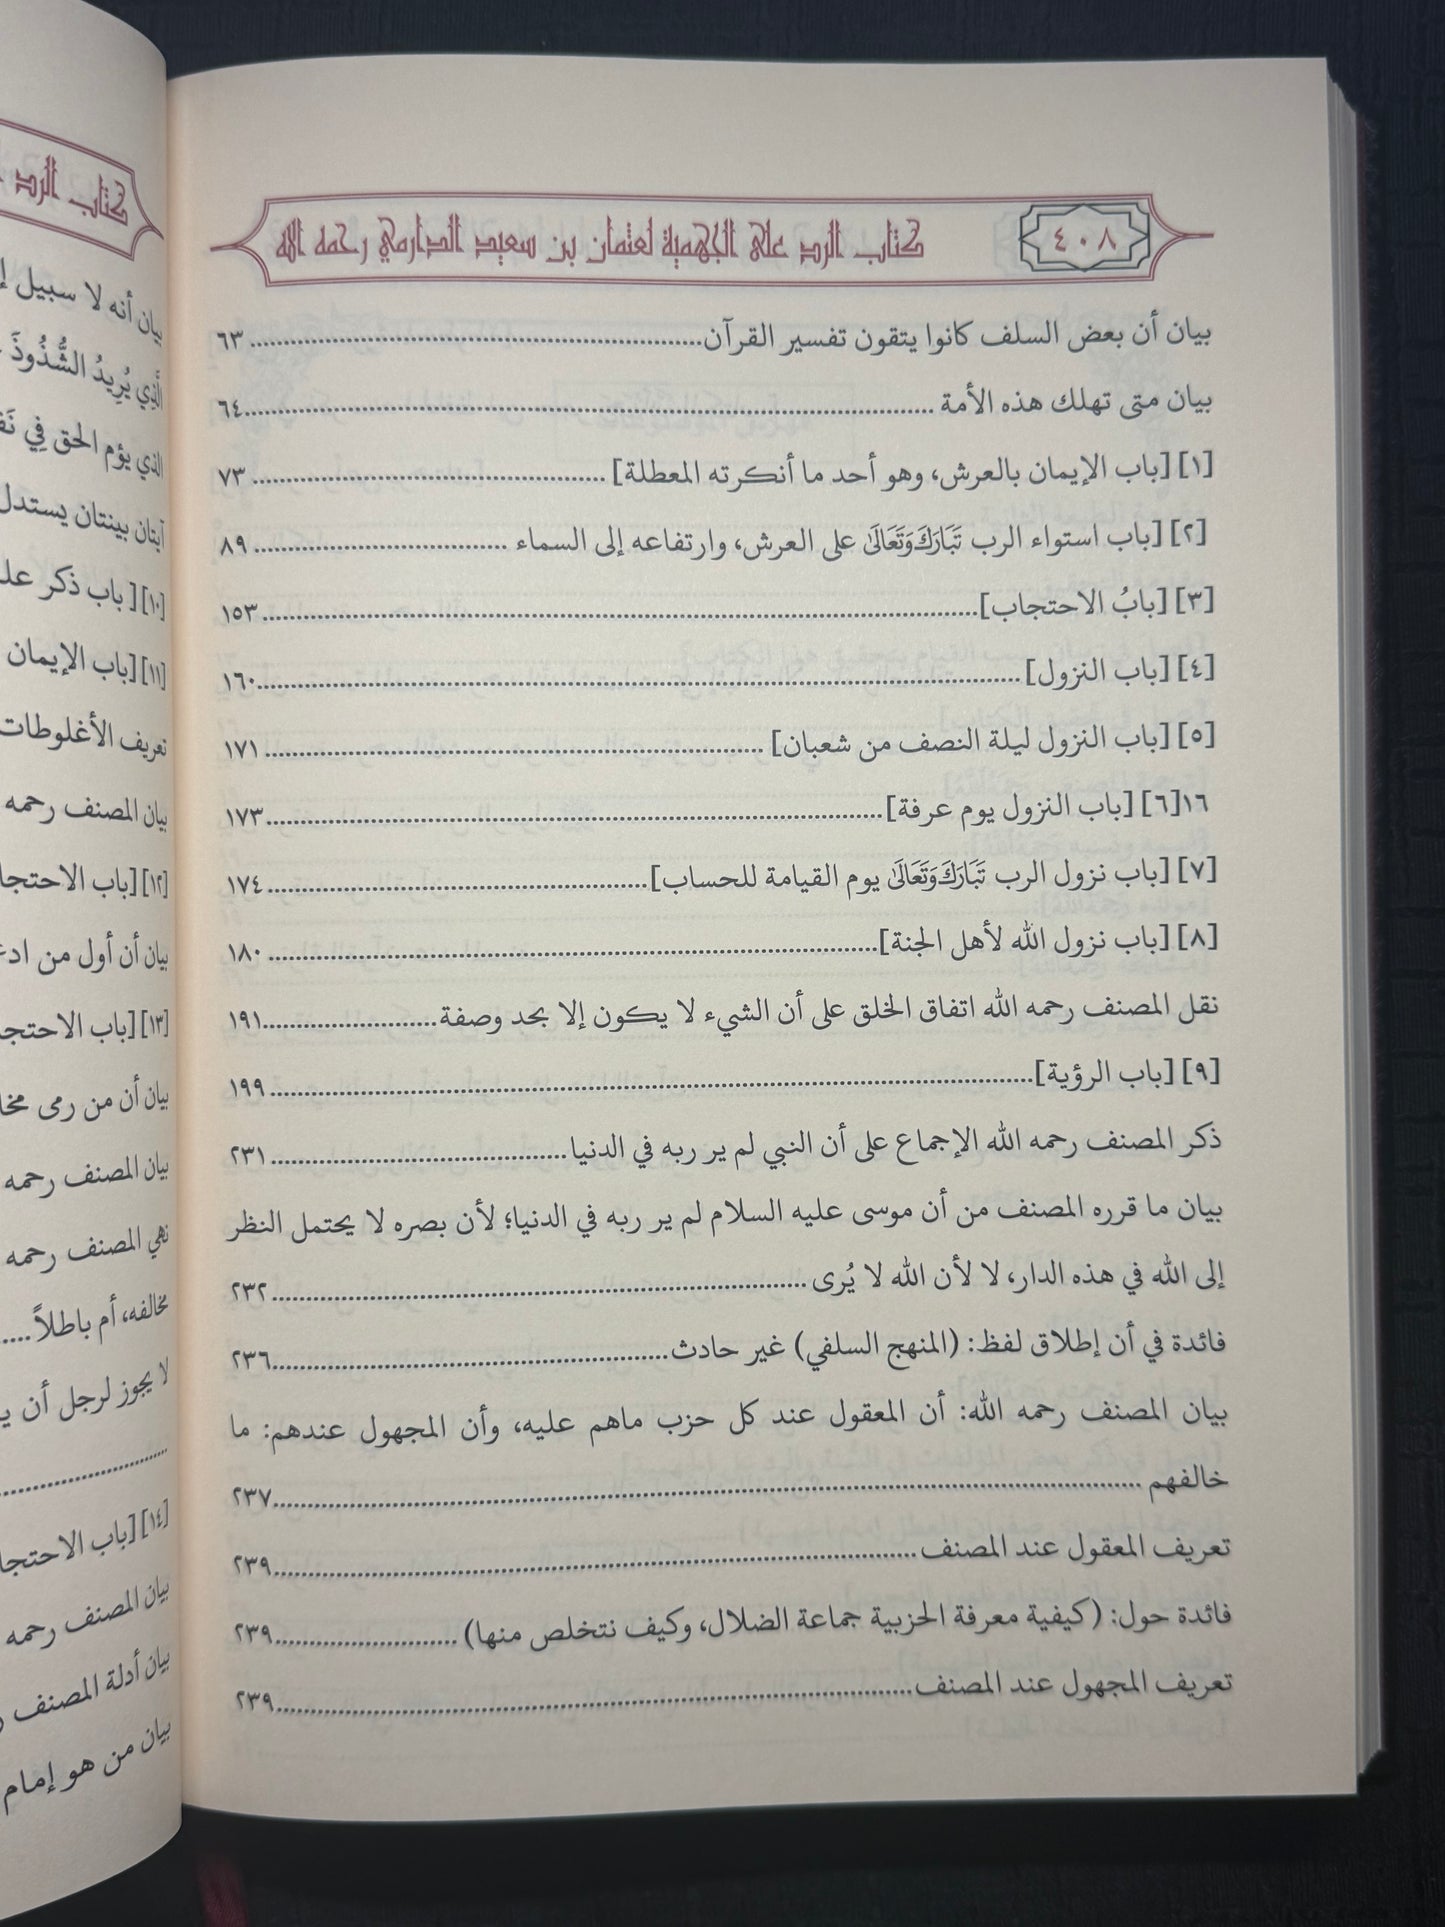 كتاب الرد على الجهمية لعثمان بن سعيد الدارمي رحمه الله
٤٠٨
بيان أن بعض السلف كانوا يتقون تفسير القرآن ..... ٦٣
بيان متى تهلك هذه الأمة ..... ٦٤
[١] [باب الإيمان بالعرش، وهو أحد ما أنكرته المعطلة] ..... ٧٣
[٢] [باب استواء الرب تَبَارَكَ وَتَعَالَى على العرش، وارتفاعه إلى السماء ..... ٨٩
[٣] [بابُ الاحتجاب] ..... ١٥٣
[٤] [باب النزول] ..... ١٦٠
[٥] [باب النزول ليلة النصف من شعبان] ..... ١٧١
١٦[٦] [باب النزول يوم عرفة] ..... ١٧٣
[٧] [باب نزول الرب تَبَارَكَ وَتَعَالَى يوم القيامة للحساب] ..... ١٧٤
[٨] [باب نزول الله لأهل الجنة] ..... ١٨٠
نقل المصنف رحمه الله اتفاق الخلق على أن الشيء لا يكون إلا بحد وصفة ..... ١٩١
[٩] [باب الرؤية] ..... ١٩٩
ذكر المصنف رحمه الله الإجماع على أن النبي لم ير ربه في الدنيا ..... ٢٣١
بيان ما قرره المصنف من أن موسى عليه السلام لم ير ربه في الدنيا؛ لأن بصره لا يحتمل النظر
إلى الله في هذه الدار، لا لأن الله لا يُرى ..... ٢٣٢
فائدة في أن إطلاق لفظ: (المنهج السلفي) غير حادث ..... ٢٣٦
بيان المصنف رحمه الله: أن المعقول عند كل حزب ماهم عليه، وأن المجهول عندهم: ما
خالفهم ..... ٢٣٧
تعريف المعقول عند المصنف ..... ٢٣٩
فائدة حول: (كيفية معرفة الحزبية جماعة الضلال، وكيف نتخلص منها) ..... ٢٣٩
تعريف المجهول عند المصنف ..... ٢٣٩
كتاب الرد
بيان أنه لا سبيل
الَّذِي يُرِيدُ الشُّذُوذَ
الذي يؤم الحق فِي
آيتان بينتان يستدل
[١٠] [باب ذكر
[١١] [باب الإيمان
تعريف الأغلوطات
بيان المصنف رحمه
[١٢] [باب
بيان أن أول من
[١٣] [باب
بيان أن من رمى
بيان المصنف رحمه
نهي المصنف رحمه
مخالفه، أم باطلاً .....
لا يجوز لرجل أن
[١٤] [باب
بيان المصنف رحمه
بيان أدلة المصنف
بيان من هو إمام